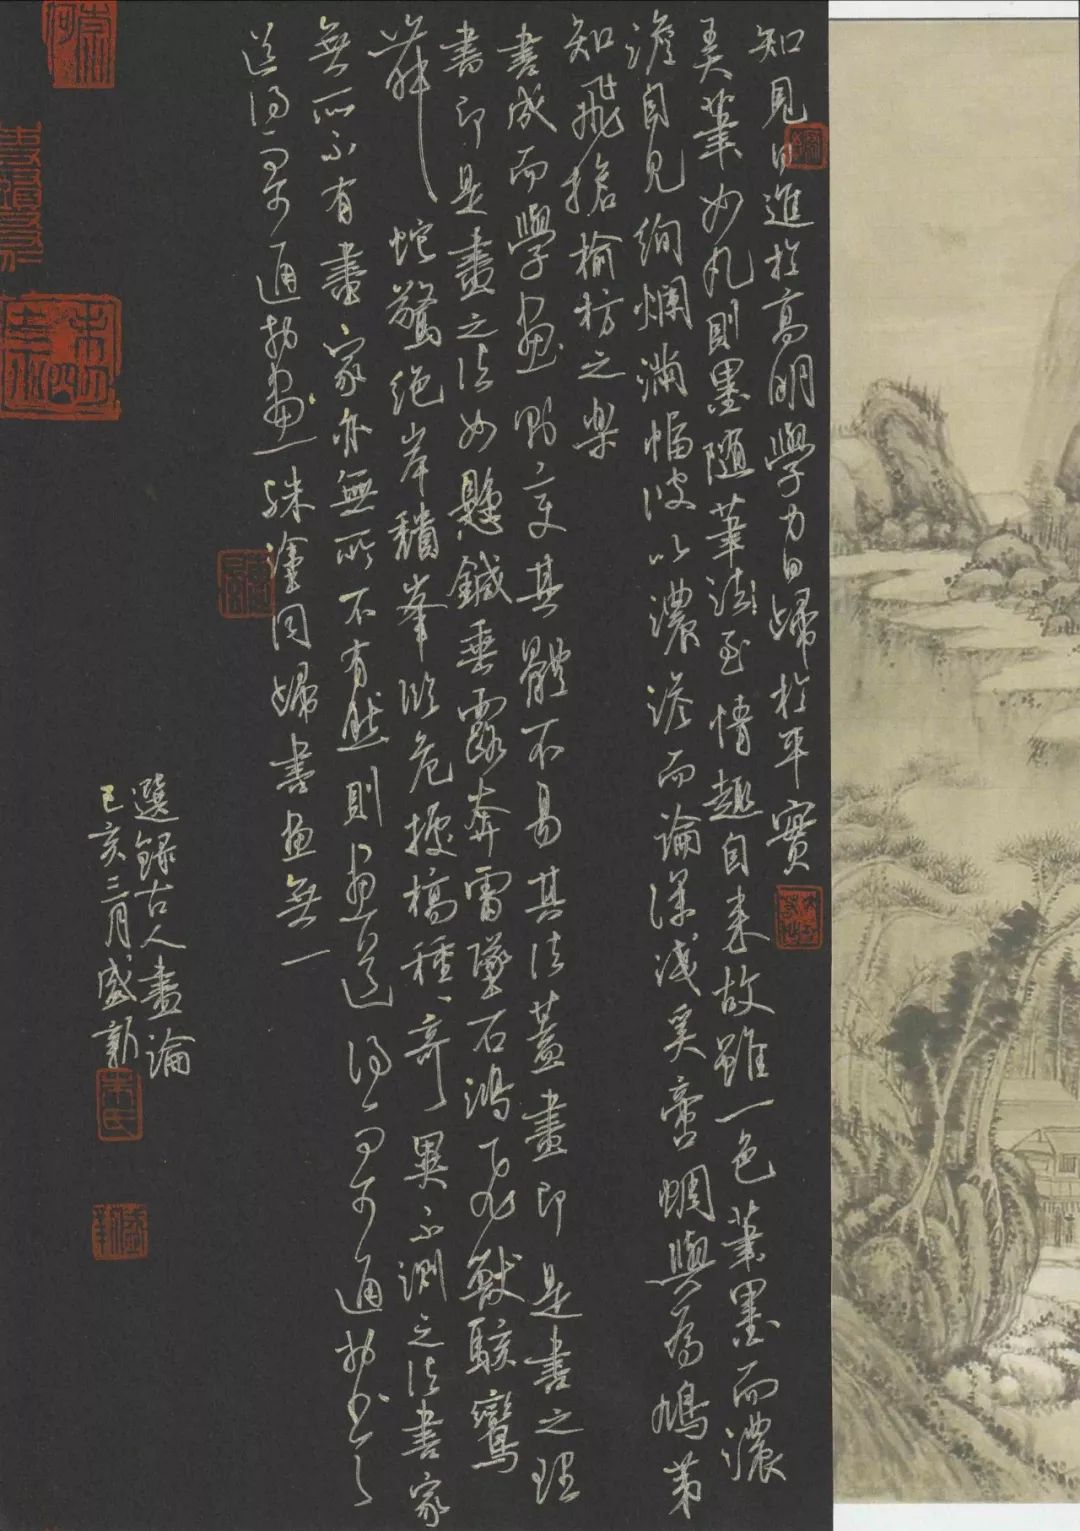 知見日進於高明學力日歸於平實
美筆如丸則墨隨筆法至情趣自來故雖一色筆墨而濃
澹自見絢爛滿幅彼以濃淡而論深淺奚啻蜩與為鳩第
知飛搶榆枋之樂
書成而學畫則變其體不易其法蓋畫即是書之理
書即是畫之法如懸鍼垂露奔雷墜石鴻飛獸駭鸞
舞蛇驚絕岸穨峯臨危據槁種種奇異不測之法書家
無所不有畫家亦無所不有然則畫道得而可通於書
道得而可通於畫殊塗同歸書畫無一
選錄古人畫論
己亥三月盛新